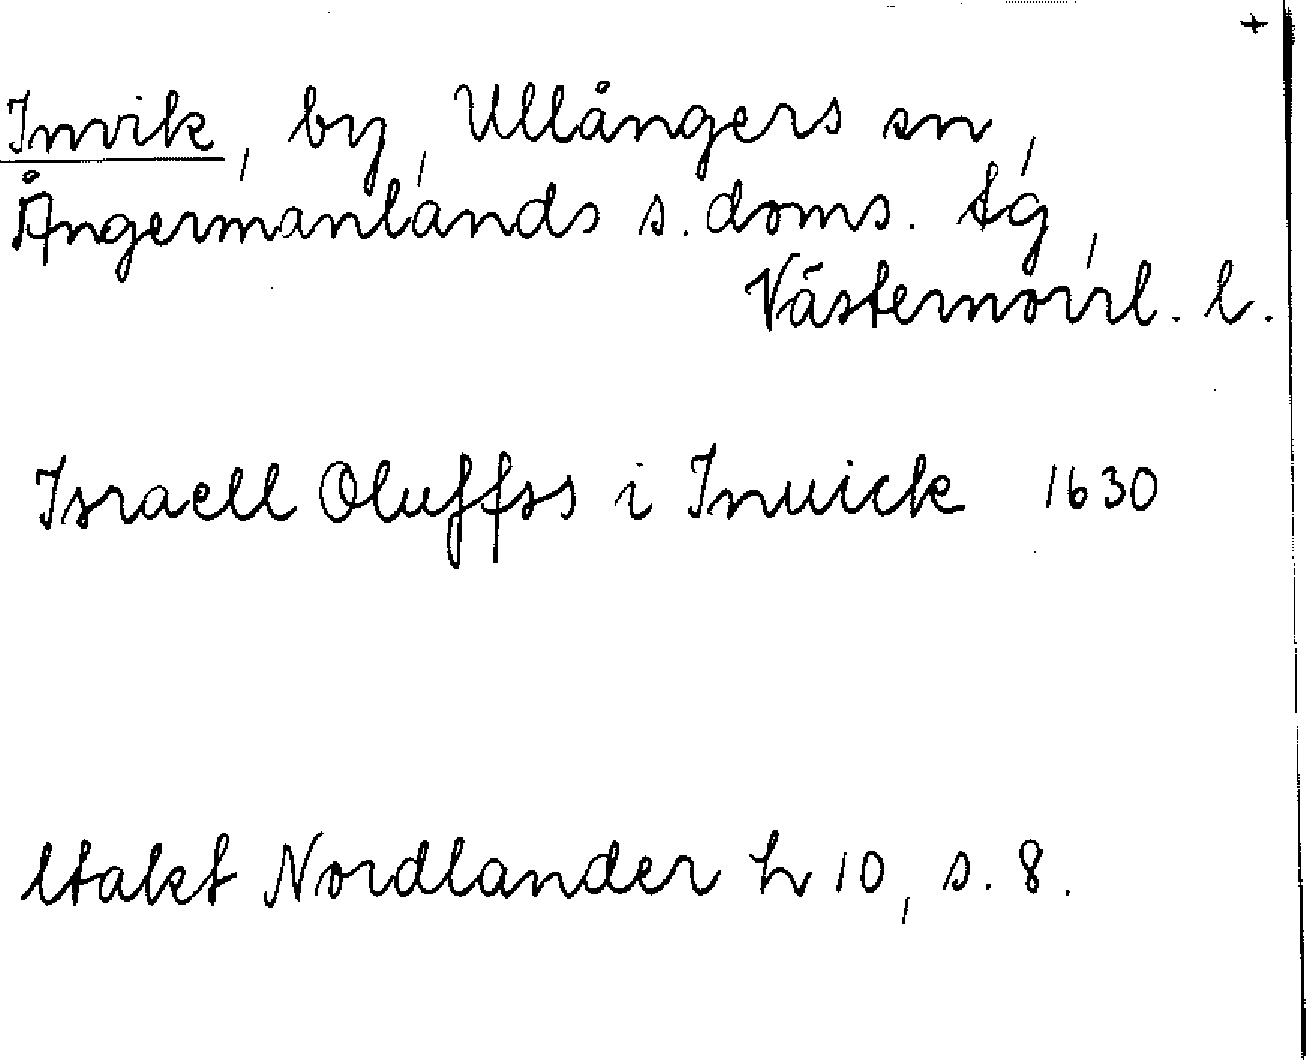 +
Invik, by, Ullångers sn,
Ångermanlands s. doms. tg,
Västernorrl. l.
Israell Oluffss i Inuick 1630
Utakt Nordlander h 10, s. 8.